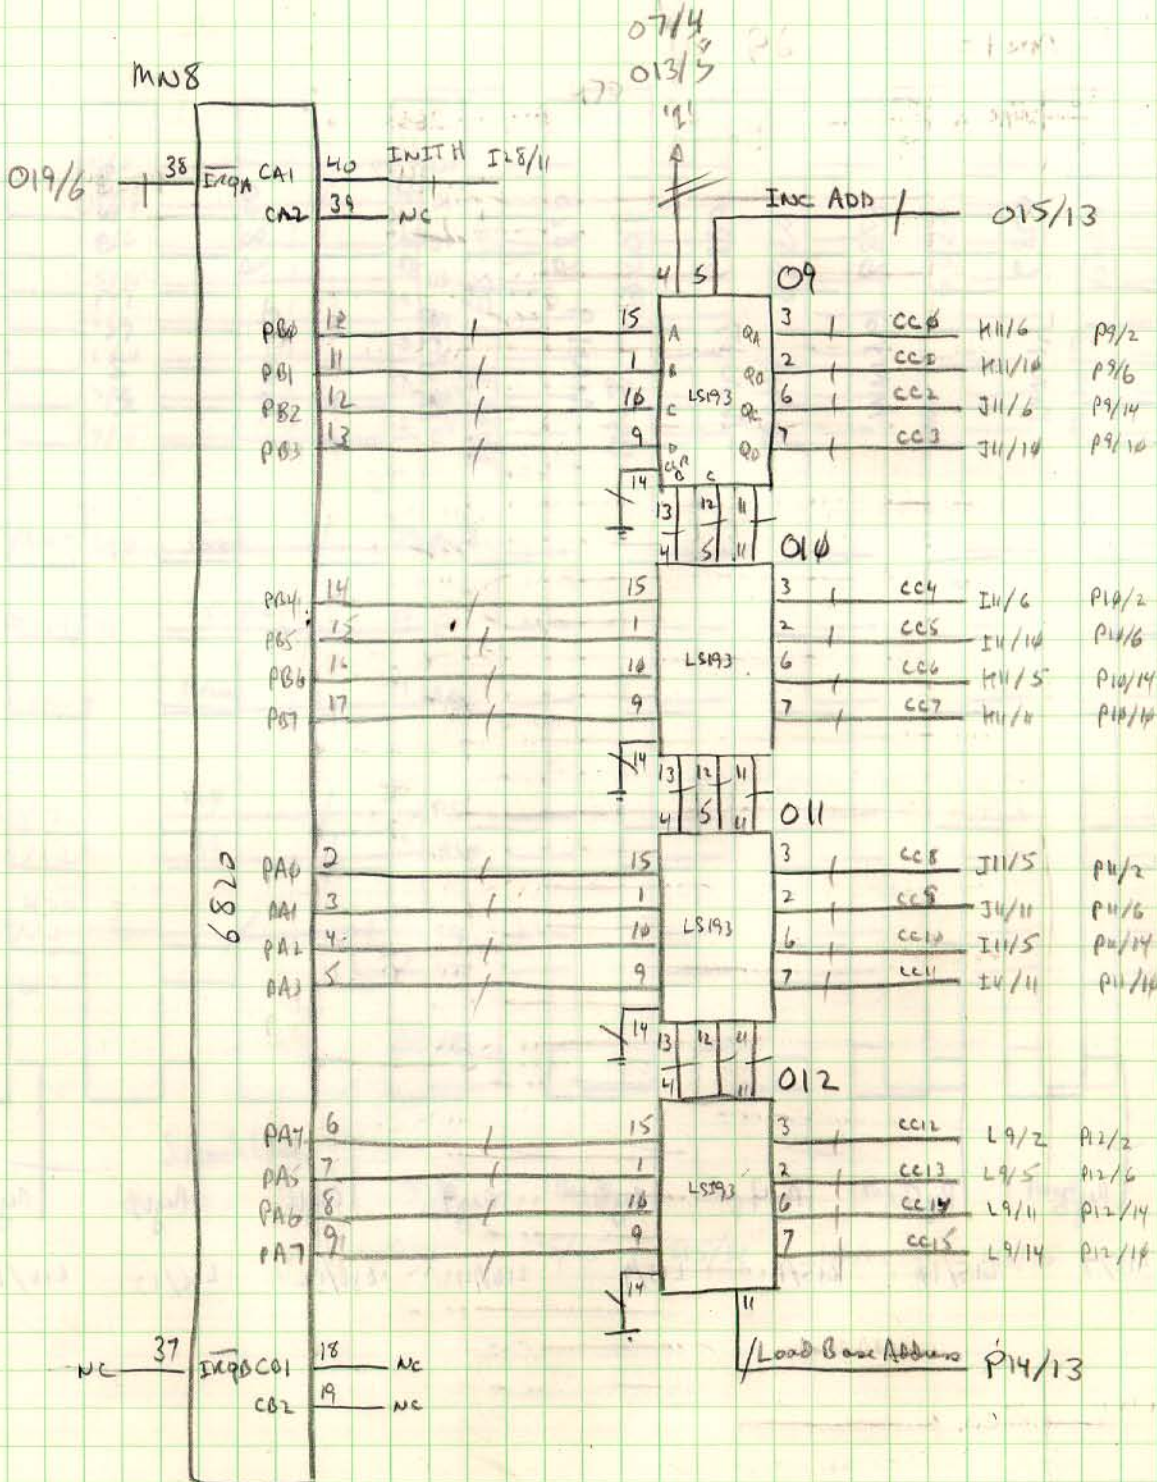 07/4
013/5
MN8
'1'
019/6 38 IRQA CA1 40 INIT H I28/11
CA2 39 NC
INC ADD 015/13
4 5 09
PB0 10 15 A QA 3 CC0 H11/6 P9/2
PB1 11 1 B QB 2 CC1 H11/10 P9/6
PB2 12 10 C LS193 QC 6 CC2 J11/6 P9/14
PB3 13 9 D QD 7 CC3 J11/10 P9/10
CLR
14 B C
13 12 11
4 5 11 010
PB4 14 15 3 CC4 I11/6 P10/2
PB5 15 1 2 CC5 I11/10 P10/6
PB6 16 10 LS193 6 CC6 H11/5 P10/14
PB7 17 9 7 CC7 H11/11 P10/10
14 13 12 11
4 5 11 011
6820
PA0 2 15 3 CC8 J11/5 P11/2
PA1 3 1 2 CC9 J11/11 P11/6
PA2 4 10 LS193 6 CC10 I11/5 P11/14
PA3 5 9 7 CC11 I11/11 P11/10
14 13 12 11
4 11 012
PA4 6 15 3 CC12 L9/2 P12/2
PA5 7 1 LS193 2 CC13 L9/5 P12/6
PA6 8 10 6 CC14 L9/11 P12/14
PA7 9 9 7 CC15 L9/14 P12/10
14 11
NC 37 IRQB CB1 18 NC
/Load Base Address P14/13
CB2 19 NC